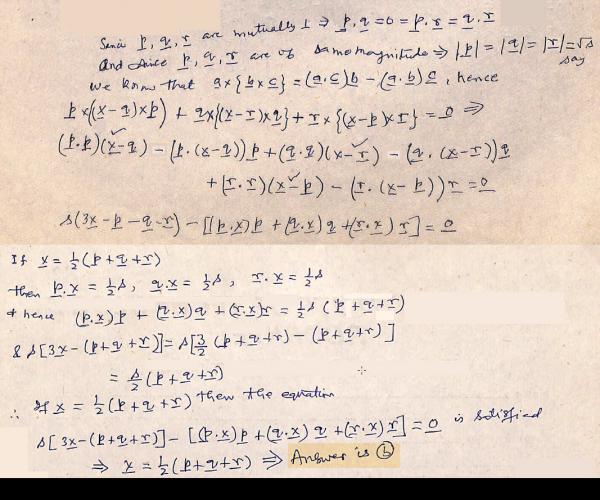 Since p, q, r are mutually ⊥ ⇒ p.q = 0 = p.r = q.r
And since p, q, r are of same magnitude ⇒ |p| = |q| = |r| = √s say
We know that a×{b×c} = (a.c)b − (a.b)c, hence
p×{(x−q)×p} + q×{(x−r)×q} + r×{(x−p)×r} = 0 ⇒
(p.p)(x−q) − (p.(x−q))p + (q.q)(x−r) − (q.(x−r))q
+ (r.r)(x−p) − (r.(x−p))r = 0
s(3x−p−q−r) − [(p.x)p + (q.x)q + (r.x)r] = 0
If x = 1/2(p+q+r)
then p.x = 1/2 s, q.x = 1/2 s, r.x = 1/2 s
& hence (p.x)p + (q.x)q + (r.x)r = 1/2 s (p+q+r)
& s[3x−(p+q+r)] = s[3/2 (p+q+r) − (p+q+r)]
= s/2 (p+q+r)
∴ If x = 1/2(p+q+r) then the equation
s[3x−(p+q+r)] − [(p.x)p + (q.x)q + (r.x)r] = 0 is satisfied
⇒ x = 1/2(p+q+r) ⇒ Answer is (b)